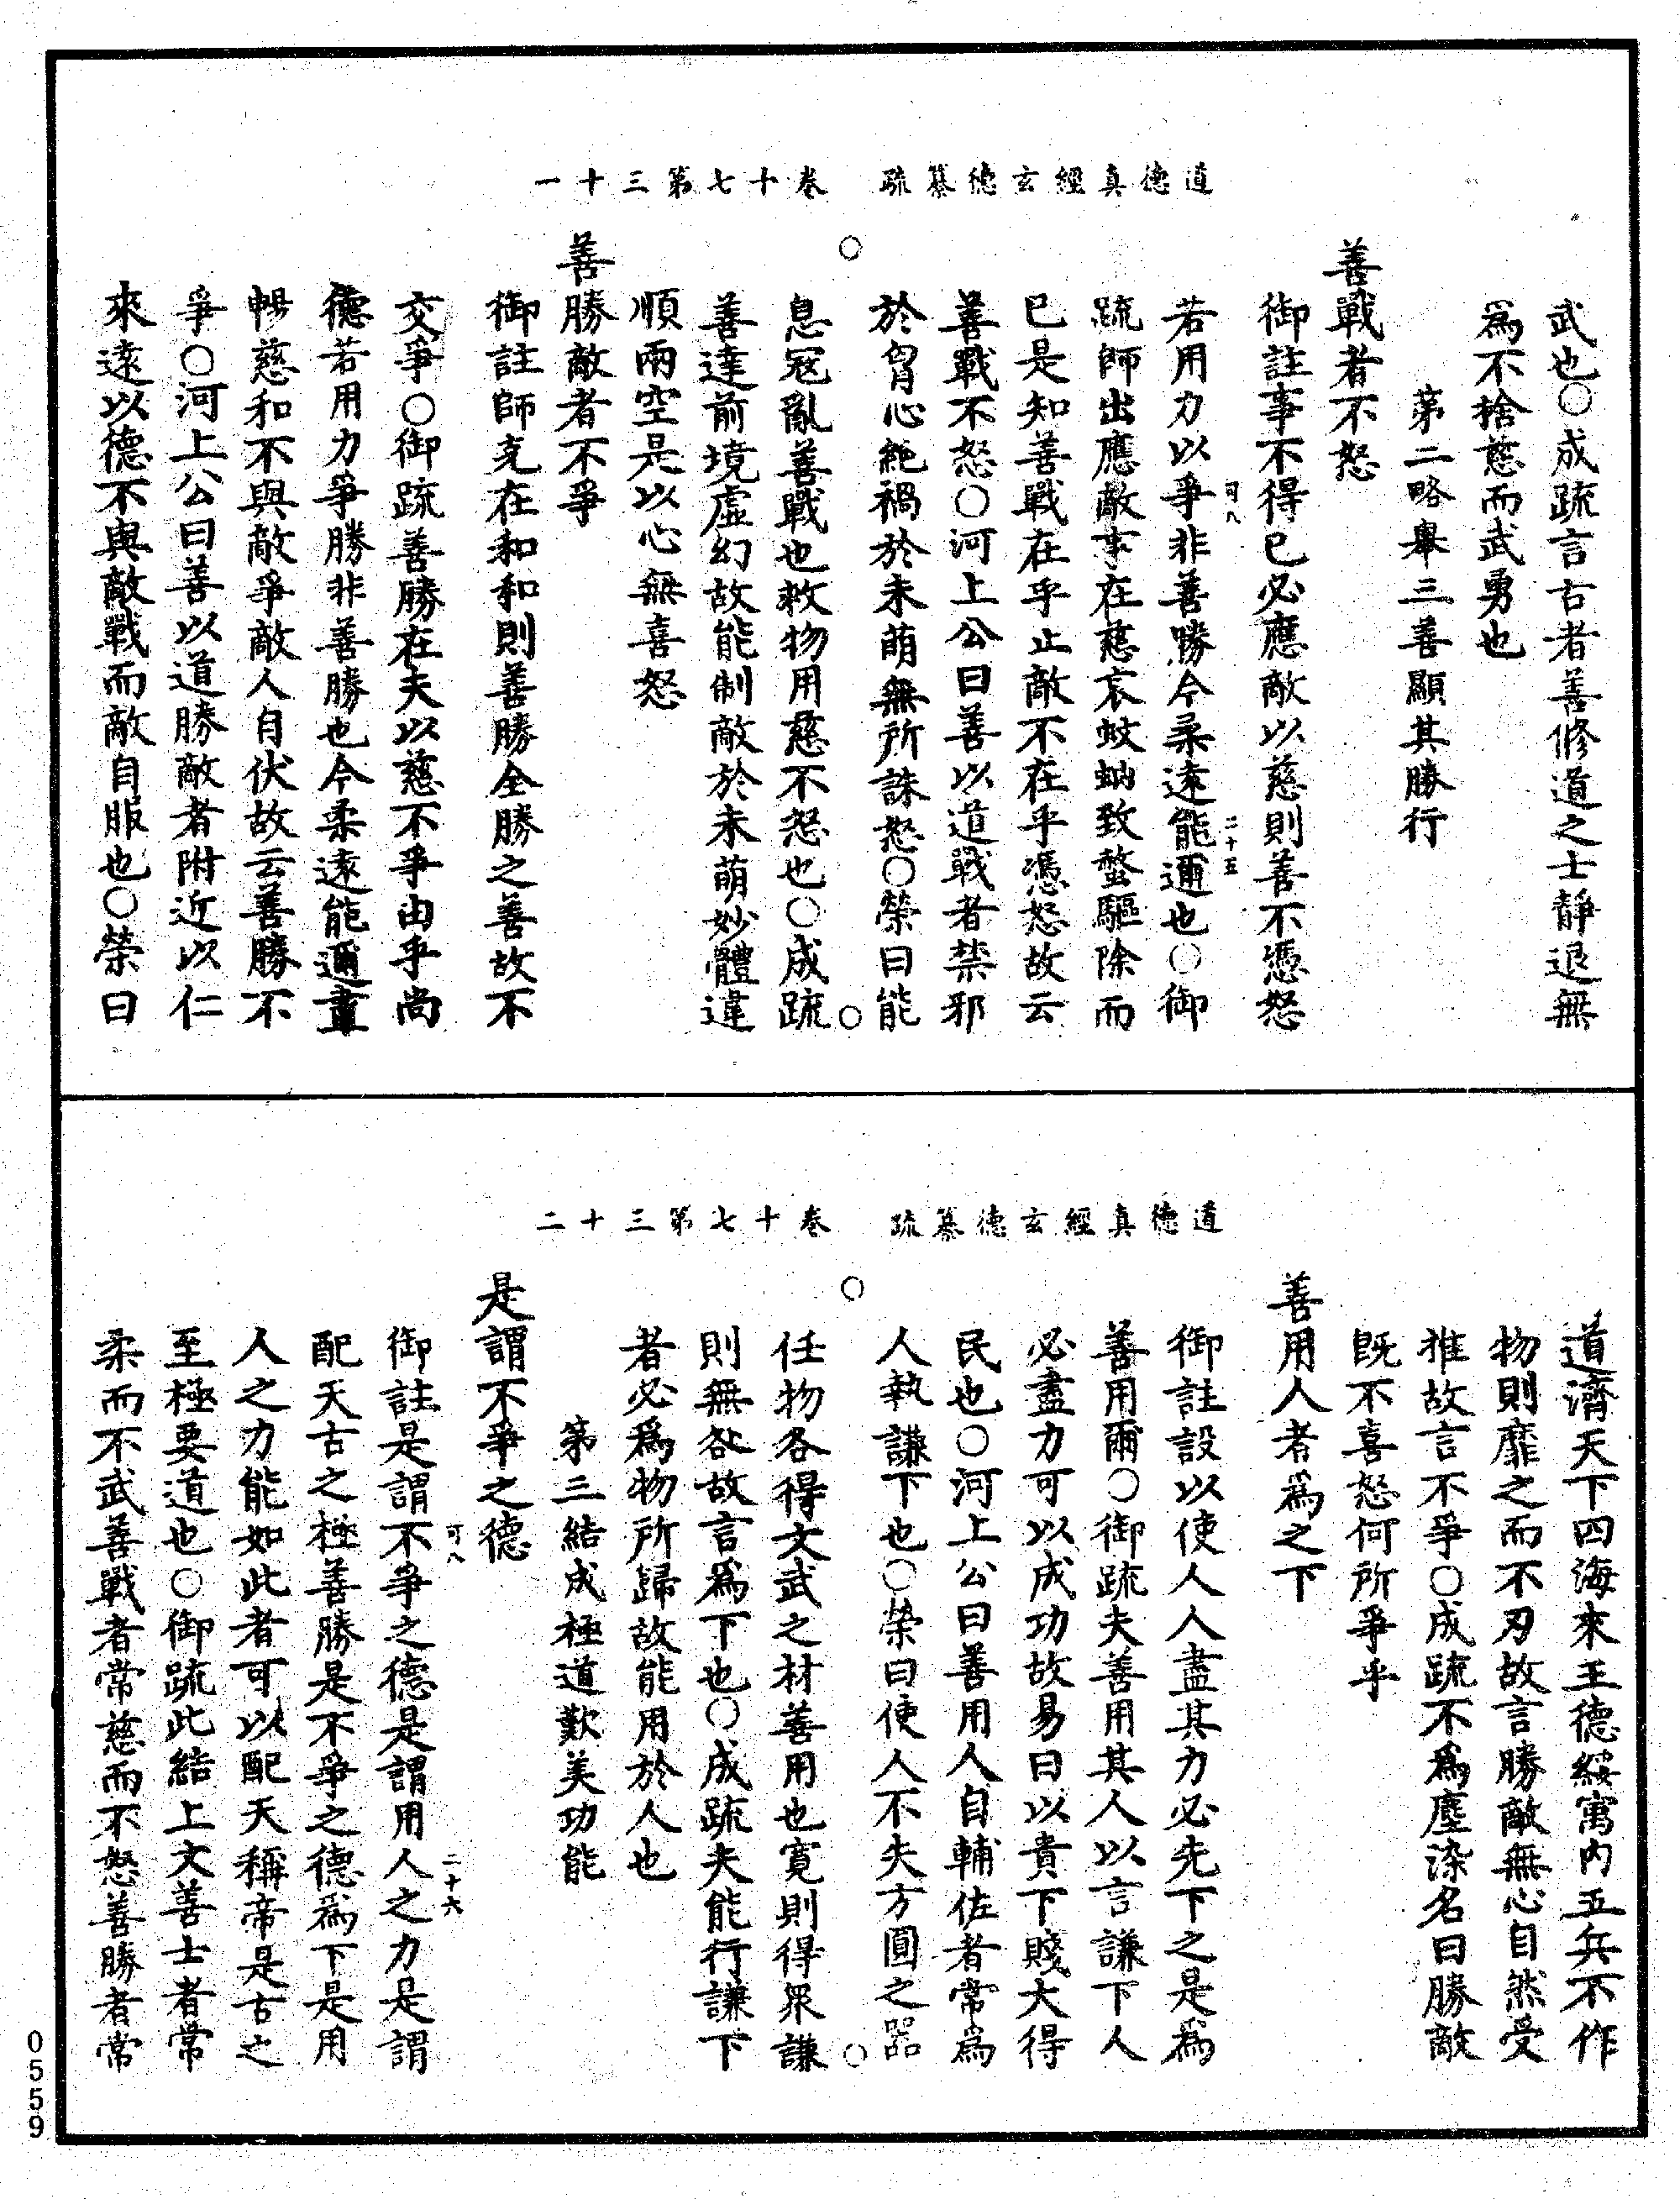 道德真經玄德纂疏　卷十七第三十一
武也○成疏言古者善修道之士靜退無
為不捨慈而武勇也
第二略舉三善顯其勝行
善戰者不怒
御註事不得已必應敵以慈則善不憑怒
若用力以爭非善勝今柔遠能邇也○御
可八
二十五
疏師出應敵事在慈哀蚊蚋致螫驅除而
已是知善戰在乎止敵不在乎憑怒故云
善戰不怒○河上公曰善以道戰者禁邪
於胷心絕禍於未萌無所誅怒○榮曰能
息冦亂善戰也救物用慈不怒也○成疏
善達前境虛幻故能制敵於未萌妙體違
順兩空是以心無喜怒
善勝敵者不爭
御註師克在和和則善勝全勝之善故不
交爭○御疏善勝在夫以慈不爭由乎尚
德若用力爭勝非善勝也今柔遠能邇晝
暢慈和不與敵爭敵人自伏故云善勝不
爭○河上公曰善以道勝敵者附近以仁
來遠以德不與敵戰而敵自服也○榮曰
道德真經玄德纂疏　卷十七第三十二
道濟天下四海來王德綏寓內五兵不作
物則靡之而不刃故言勝敵無心自然受
推故言不爭○成疏不為塵染名曰勝敵
既不喜怒何所爭乎
善用人者為之下
御註設以使人人盡其力必先下之是為
善用爾○御疏夫善用其人以言謙下人
必盡力可以成功故易曰以貴下賤大得
民也○河上公曰善用人自輔佐者常為
人執謙下也○榮曰使人不失方圓之器
任物各得文武之材善用也寬則得眾謙
則無咎故言為下也○成疏夫能行謙下
者必為物所歸故能用於人也
第三結成極道歎美功能
是謂不爭之德
御註是謂不爭之德是謂用人之力是謂
可八
二十六
配天古之極善勝是不爭之德為下是用
人之力能如此者可以配天稱帝是古之
至極要道也○御疏此結上文善士者常
柔而不武善戰者常慈而不怒善勝者常
0559